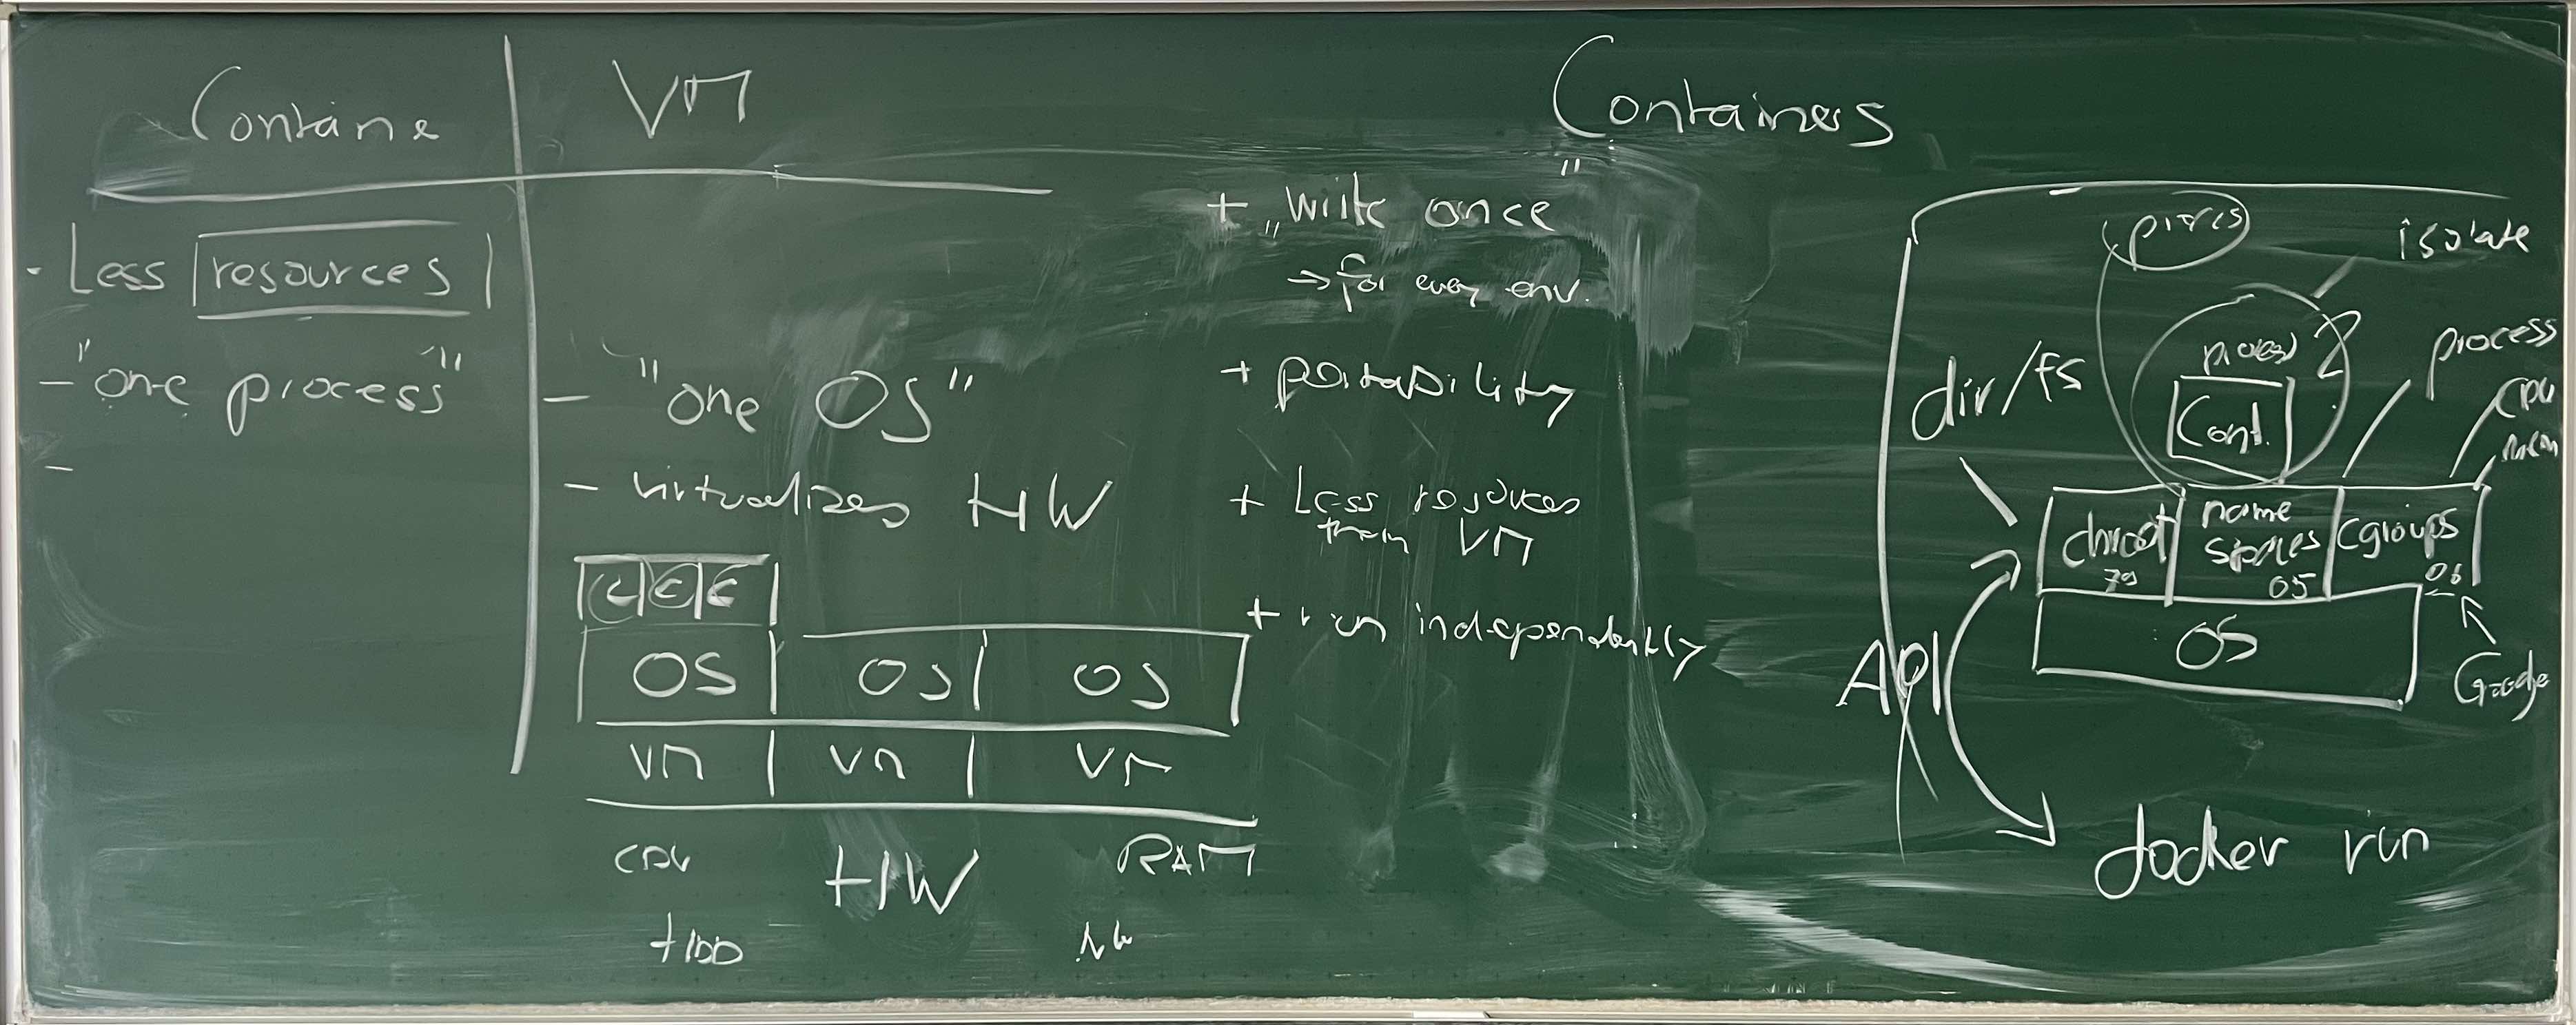 Containe
VM
· Less resources
- "one process"
-
- "one OS"
- virtualizes HW
C C C
OS OS OS
VM VM VM
CPU HW RAM
HDD
Containers
+ „Write once"
→ for every env.
+ portability
+ Less resources
than VM
+ run independently
isolate
process
Cont.
dir/fs
process
CPU
mem
chroot 79
name
spaces 05
cgroups 06
OS
Google
API
docker run